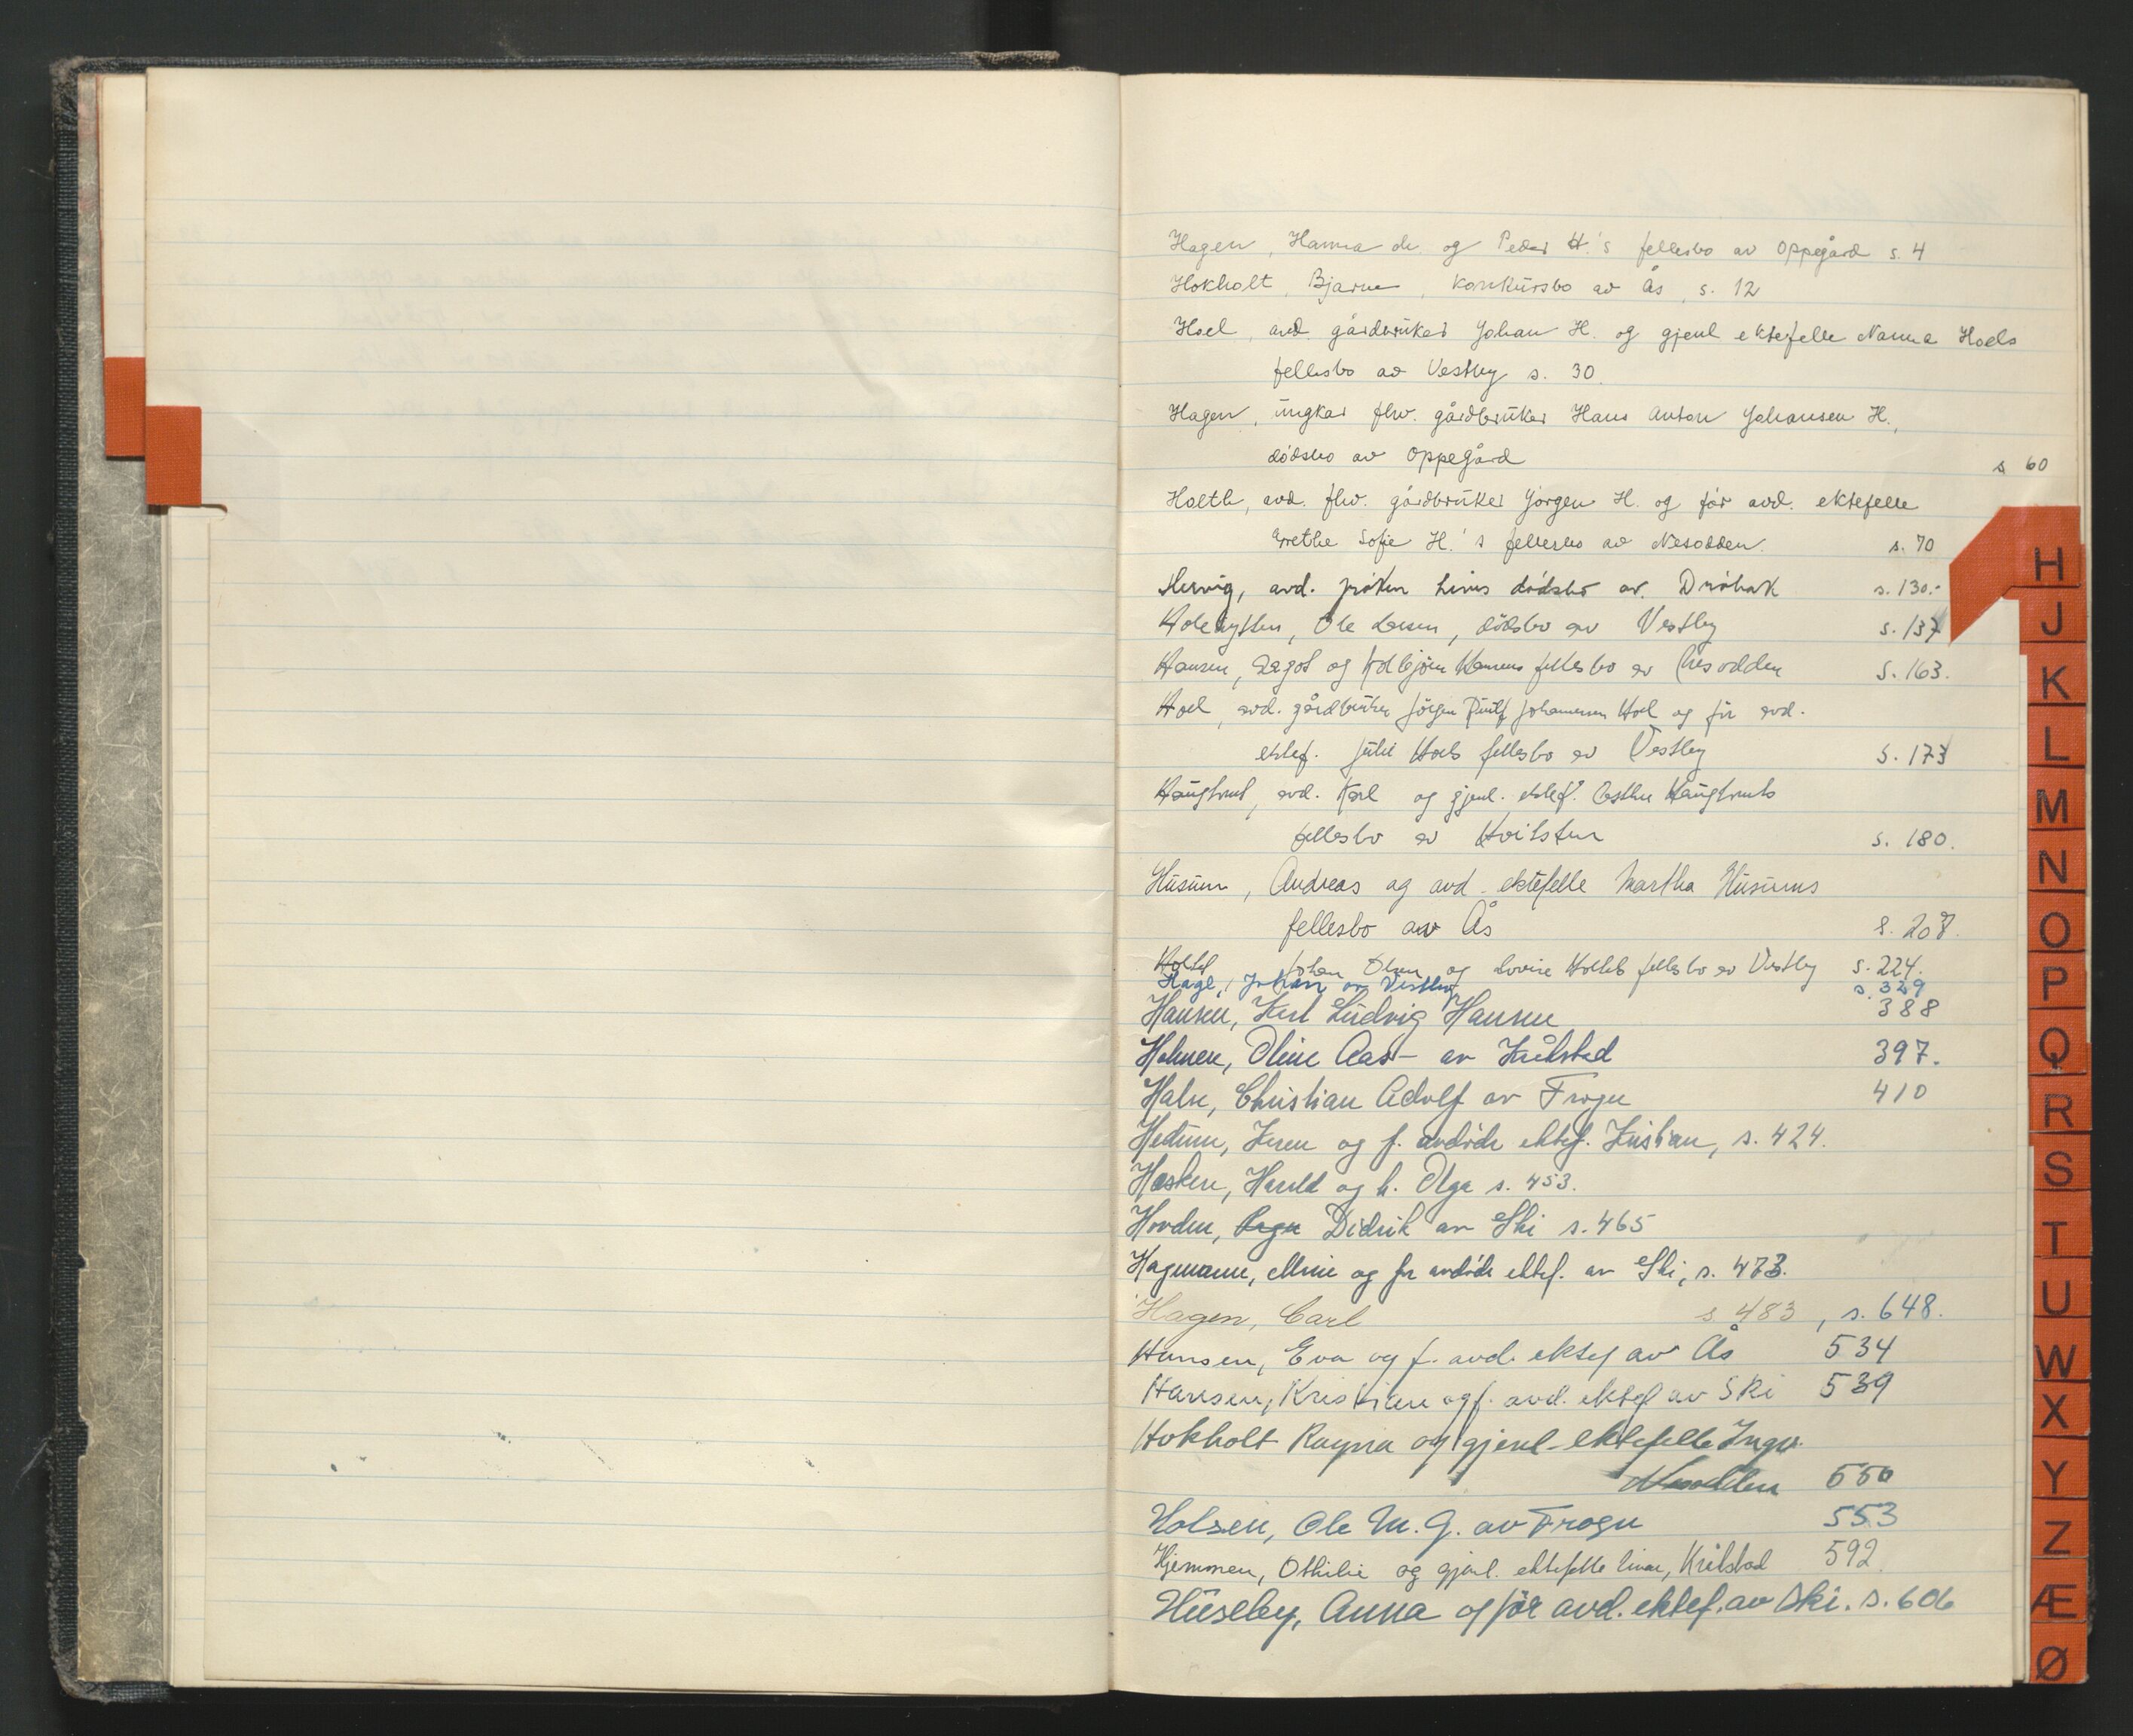 Hagen, Hanna de. og Peder H.'s fellesbo av Oppegård s. 4
Hokholt, Bjarne, konkursbo av Ås, s. 12
Hoel, avd. gårdbruker Johan H. og gjenl ektefelle Nanna Hoels
fellesbo av Vestby s. 30.
Hagen, ungkar fhv. gårdbruker Hans Anton Johansen H.,
dødsbo av Oppegård s 60
Holth, avd. fhv. gårdbruker Jørgen H. og før avd. ektefelle
Grethe Sofie H.'s fellesbo av Nesodden. s. 70
Hervig, avd. frøken Livis dødsbo av. Drøbak s. 130.-
Holehytten, Ole Larsen, dødsbo av Vestby s. 137
Hansen, Dagot og Kolbjørn Hansens fellesbo av Nesodden s. 163.
Hoel, avd. gårdbruker Jörgen Johannesen Hoel og før avd.
ektef. Julie Hoels fellesbo av Vestby s. 173
avd. Karl og gjenl. ektef.
fellesbo av Hvitsten s. 180.
Husum, Andreas og avd. ektefelle Martha Husums
fellesbo av Ås s. 208.
Holtet Johan Olsen og Lovise Holtets fellesbo av Vestby s. 224.
Hage, Johan av Vestby s. 329
Hansen, Karl Ludvig Hansen 388
Holmen, Oline Aas- av Kråkstad 397.
Halse, Christian Adolf av Frogn 410
Hedum, Karen og f. avdøde ektef. Kristian, s. 424.
Hasken, Harald og h. Olga s. 453.
Hovden, Didrik av Ski s. 465
Hagmann, Mine og før avdøde ektef. av Ski, s. 473.
Hagen, Carl s. 483, s. 648.
Hansen, Eva og f. avd. ektef av Ås 534
Hansen, Kristian og f. avd. ektef av Ski 539
Hokholt Ragna og gjenl. ektefelle Ingv.
Nesodden 550
Holsen, Ole M. G. av Frogn 553
Hjemmen, Othilie og gjenl. ektefelle Einar, Kråkstad 592
Huseby, Anna og før avd. ektef. av Ski. s. 606
H
J
K
L
M
N
O
P
Q
R
S
T
U
W
X
Y
Z
Æ
Ø